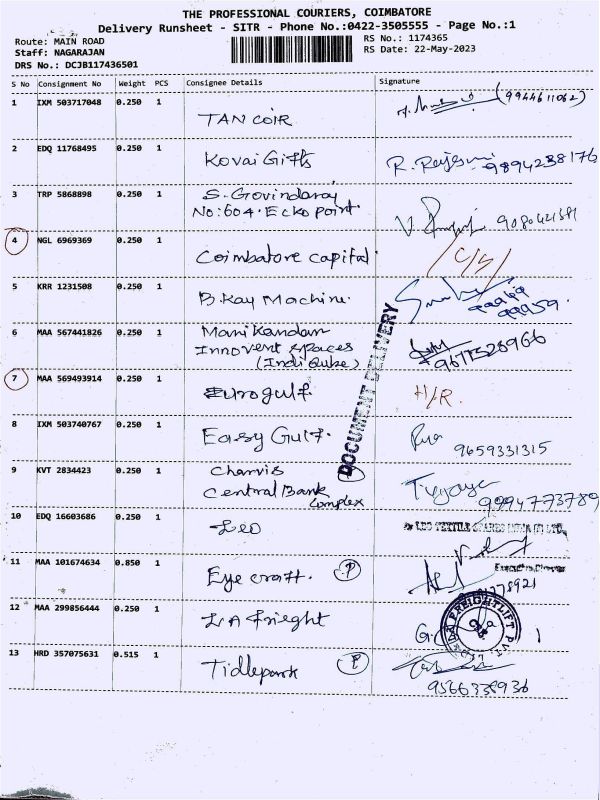 THE PROFESSIONAL COURIERS, COIMBATORE
Delivery Runsheet - SITR - Phone No.:0422-3505555 - Page No.:1
Route: MAIN ROAD
Staff: NAGARAJAN
DRS No.: DCJB117436501
RS No.: 1174365
RS Date: 22-May-2023
S No Consignment No Weight PCS Consignee Details Signature
1 IXM 503717048 0.250 1 (9944611062)
TAN COIR
2 EDQ 11768495 0.250 1
Kovai Gifts R. 9894238176
3 TRP 5868898 0.250 1 S. Govindaraj
No: 604. Ecko point.
4 NGL 6969369 0.250 1
Coimbatore capital. C/S
5 KRR 1231508 0.250 1
B. Kay Machine.
6 MAA 567441826 0.250 1 Manikandan
Innovent spaces
(Indi Qube)
7 MAA 569493914 0.250 1
Eurogulf. H/R.
DOCUMENT DELIVERY
8 IXM 503740767 0.250 1
Easy Gulf. 9659331315
9 KVT 2834423 0.250 1 Charvis
Central Bank
Complex 9994773789
10 EDQ 16603686 0.250 1
Leo
11 MAA 101674634 0.850 1
Eye craft. P
12 MAA 299856444 0.250 1
LA frieght G.
13 HRD 357075631 0.515 1
Tidlepark P
9566338936